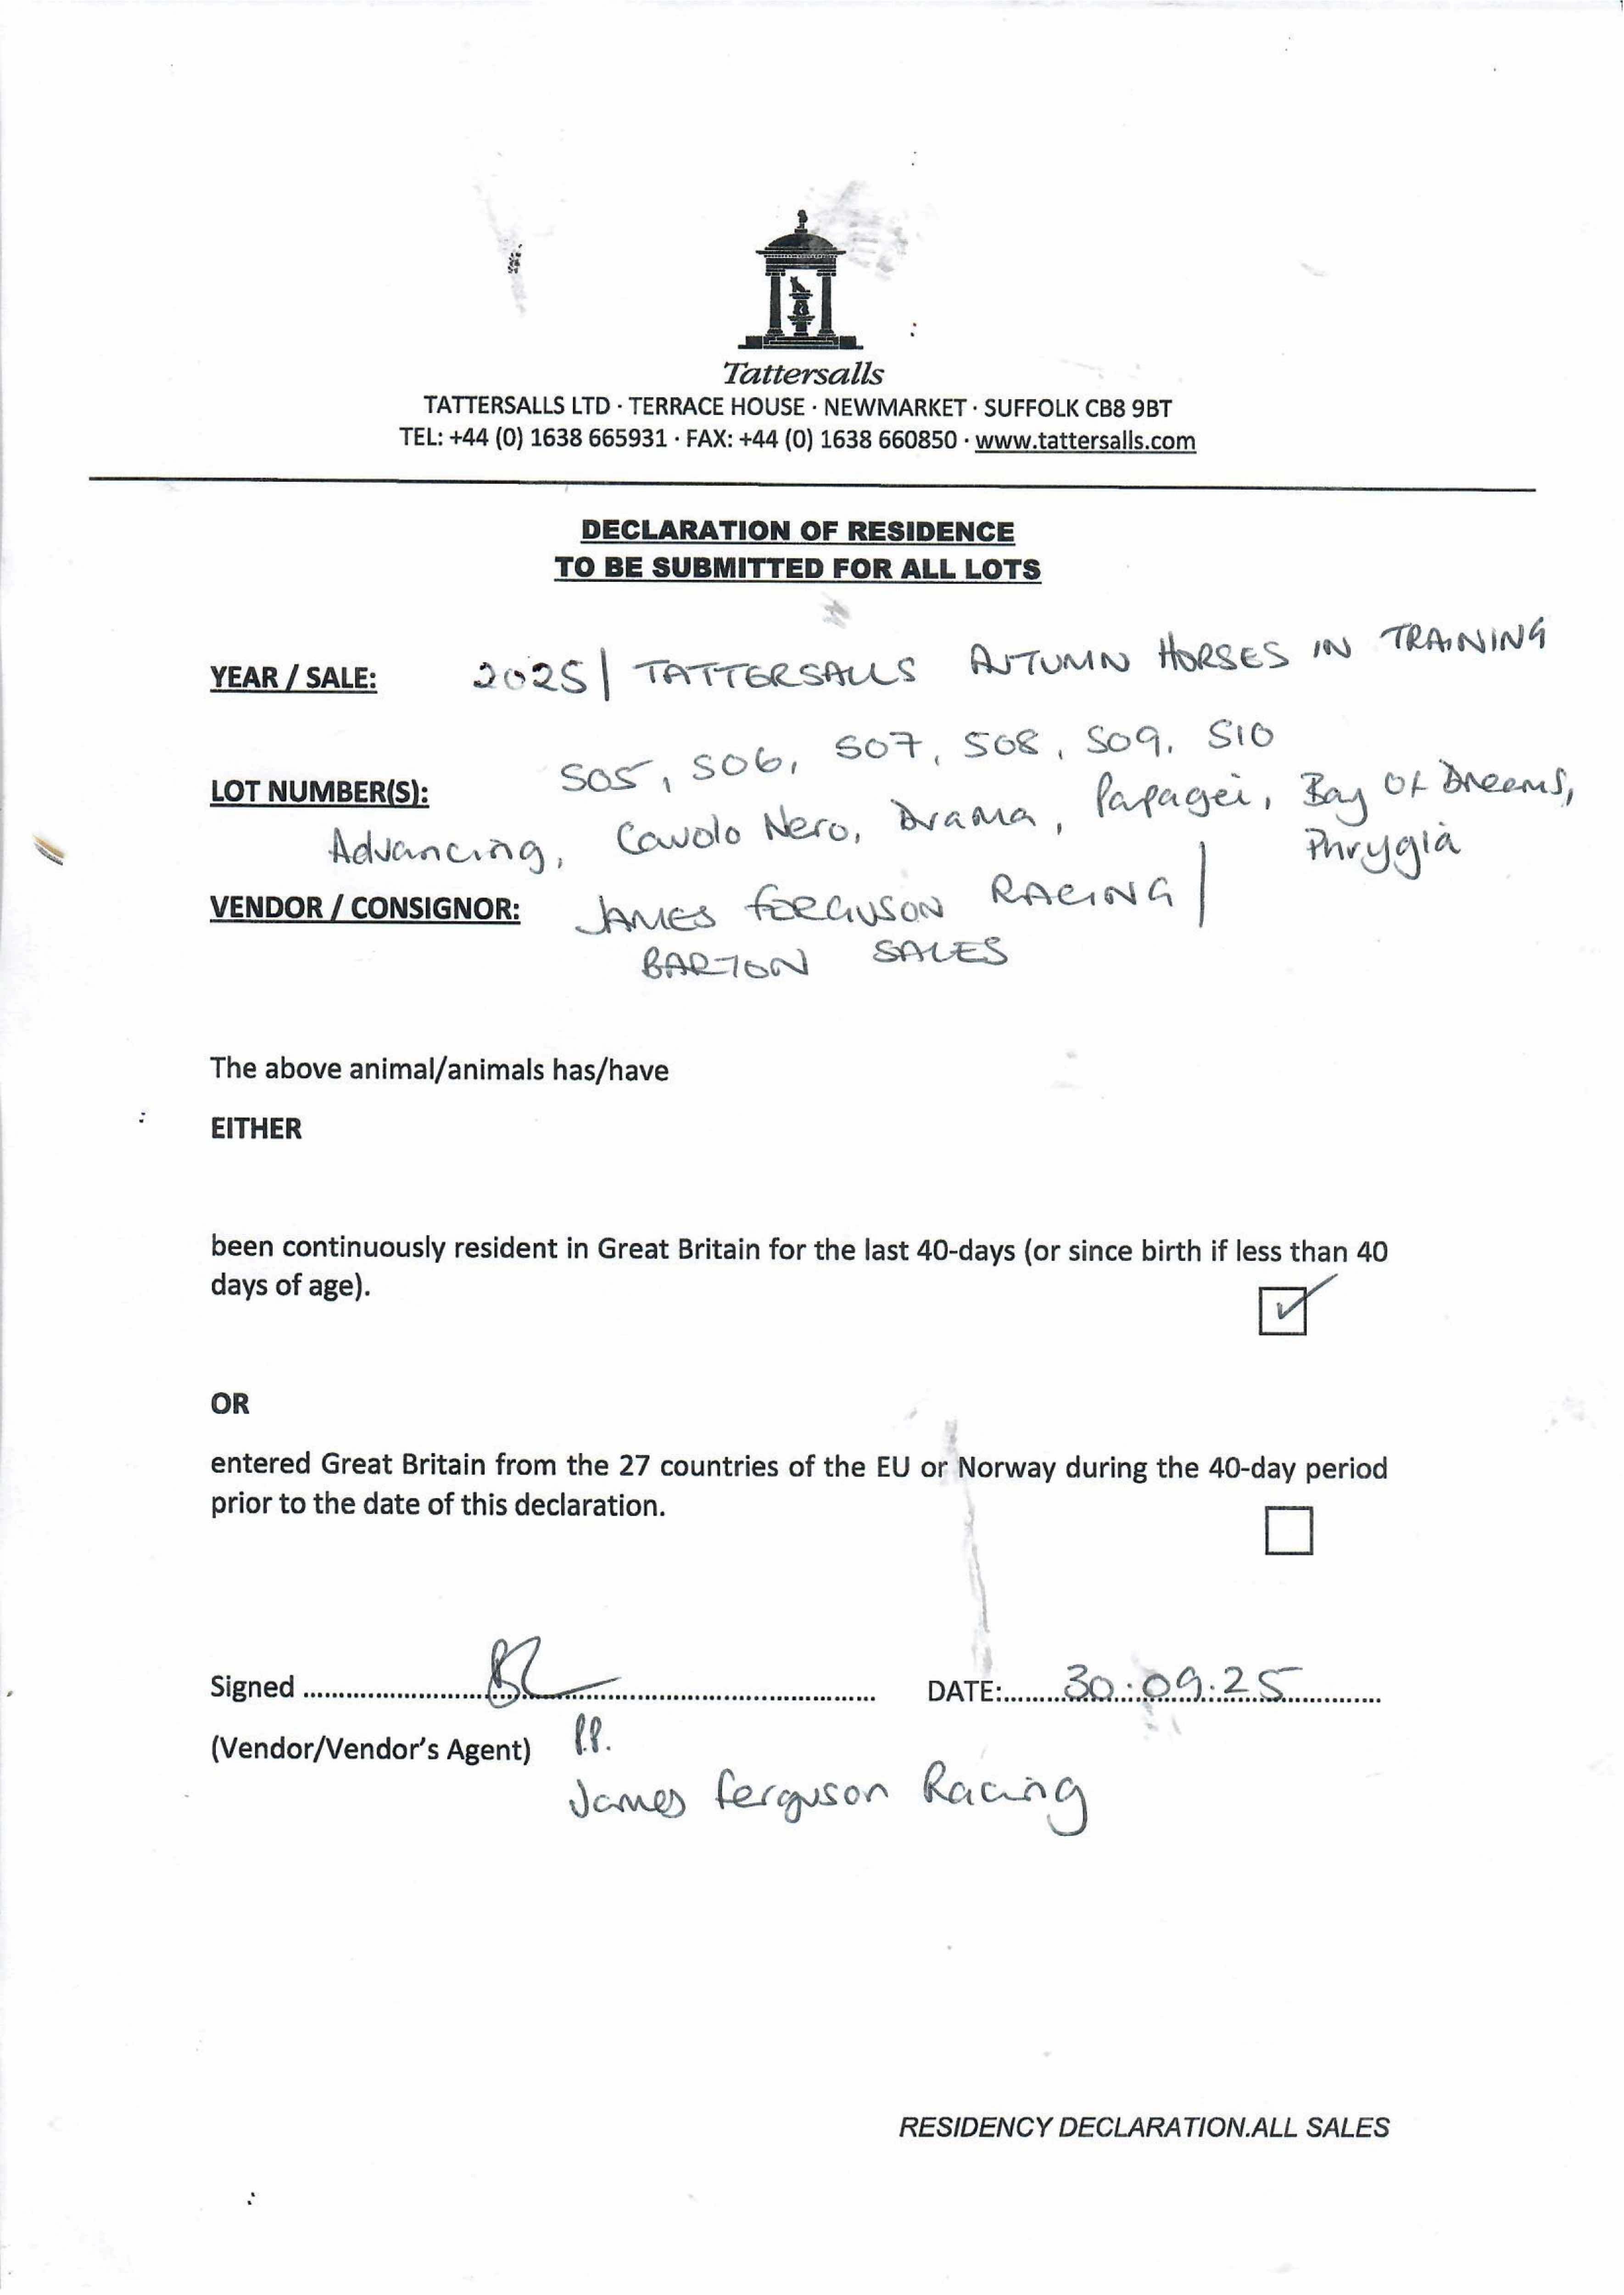 Tattersalls
TATTERSALLS LTD · TERRACE HOUSE · NEWMARKET · SUFFOLK CB8 9BT
TEL: +44 (0) 1638 665931 · FAX: +44 (0) 1638 660850 · www.tattersalls.com
DECLARATION OF RESIDENCE
TO BE SUBMITTED FOR ALL LOTS
YEAR / SALE: 2025 | TATTERSALLS AUTUMN HORSES IN TRAINING
LOT NUMBER(S): 505, 506, 507, 508, 509, 510
Advancing, Cavolo Nero, Drama, Papagei, Bay Of Dreams,
Phrygia
VENDOR / CONSIGNOR: JAMES FERGUSON RACING |
BARTON SALES
The above animal/animals has/have
EITHER
been continuously resident in Great Britain for the last 40-days (or since birth if less than 40
days of age). ✓
OR
entered Great Britain from the 27 countries of the EU or Norway during the 40-day period
prior to the date of this declaration.
Signed ........ DATE: 30.09.25
(Vendor/Vendor's Agent) P.P.
James Ferguson Racing
RESIDENCY DECLARATION.ALL SALES